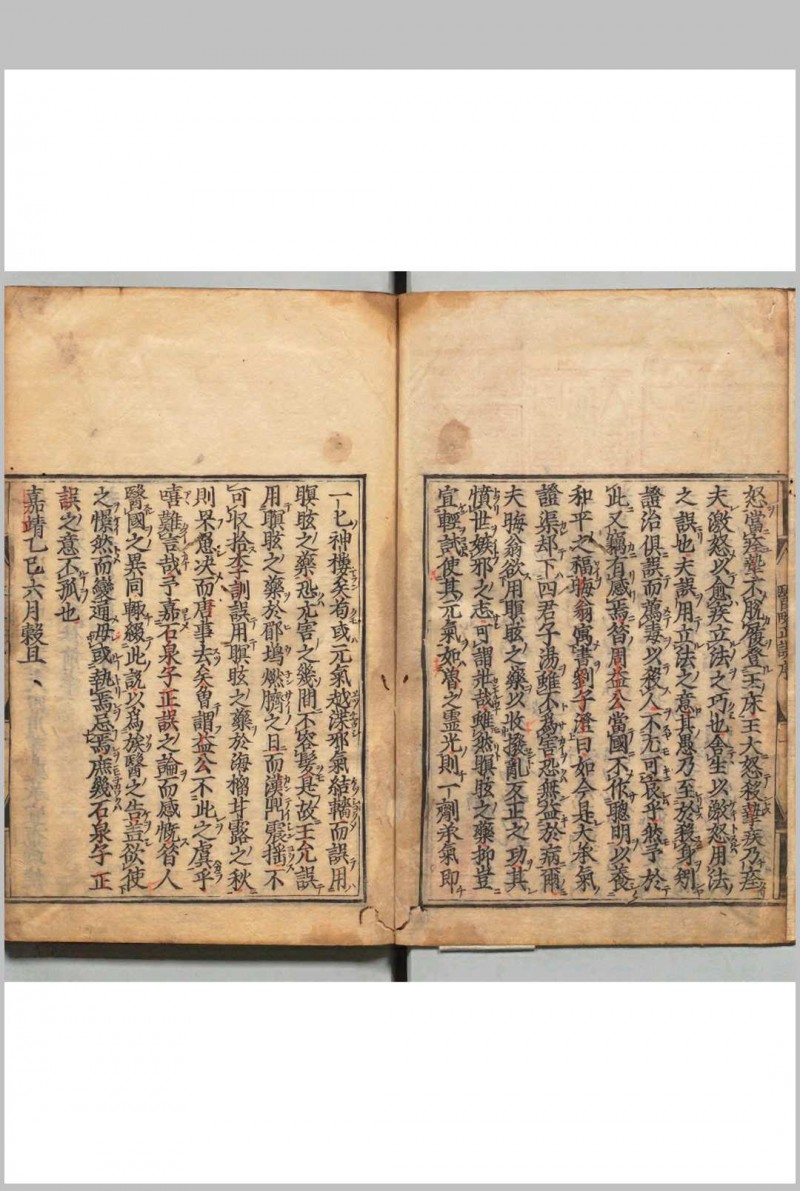 怒當痊摯不脫履登王床王大怒殺摯疾乃痊
夫激怒以愈疾立法之巧也舍生以激怒用法
之誤也夫誤用立法之意其愚乃至於殺身矧
證治俱誤而薦毒以殺人不尤可哀乎然予於
此又竊有感焉昔周益公當國不作聰明以養
和平之福晦翁寓書劉子澄曰如今是大承氣
證渠却下四君子湯雖不為害恐無益於病爾
夫晦翁欲用瞑眩之藥以收撥亂反正之功其
憤世嫉邪之志可謂壯哉雖然瞑眩之藥抑豈
宜輕試使其元氣如魯之靈光則一劑承氣即
一匕神樓矣苟或元氣越渫邪氣結轖而誤用
瞑眩之藥恐亢害之幾間不容髮是故王允誤
用瞑眩之藥於郿塢燃臍之日而漢鼎震搖不
可收拾李訓誤用瞑眩之藥於海榴甘露之秋
則果愈決而唐事去矣曾謂益公不此之虞乎
嘻難言哉予嘉石泉子正誤之論而感憤昔人
醫國之異同輒綴此說以為族醫之告豈欲使
之憬然而變通毋或執焉忌焉庶幾石泉子正
誤之意不孤也
嘉靖乙巳六月穀旦